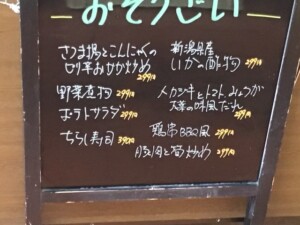 おそうざい
さつま揚とこんにゃくの
切干おかか炒め
299円
野菜煮物 299円
ポテトサラダ 299円
ちらし寿司 390円
新潟県産
いかの酢物 299円
メカジキとトマト、みょうが
大葉の味風だれ 299円
鶏串BBQ風 299円
豚肉と筍炒め 299円